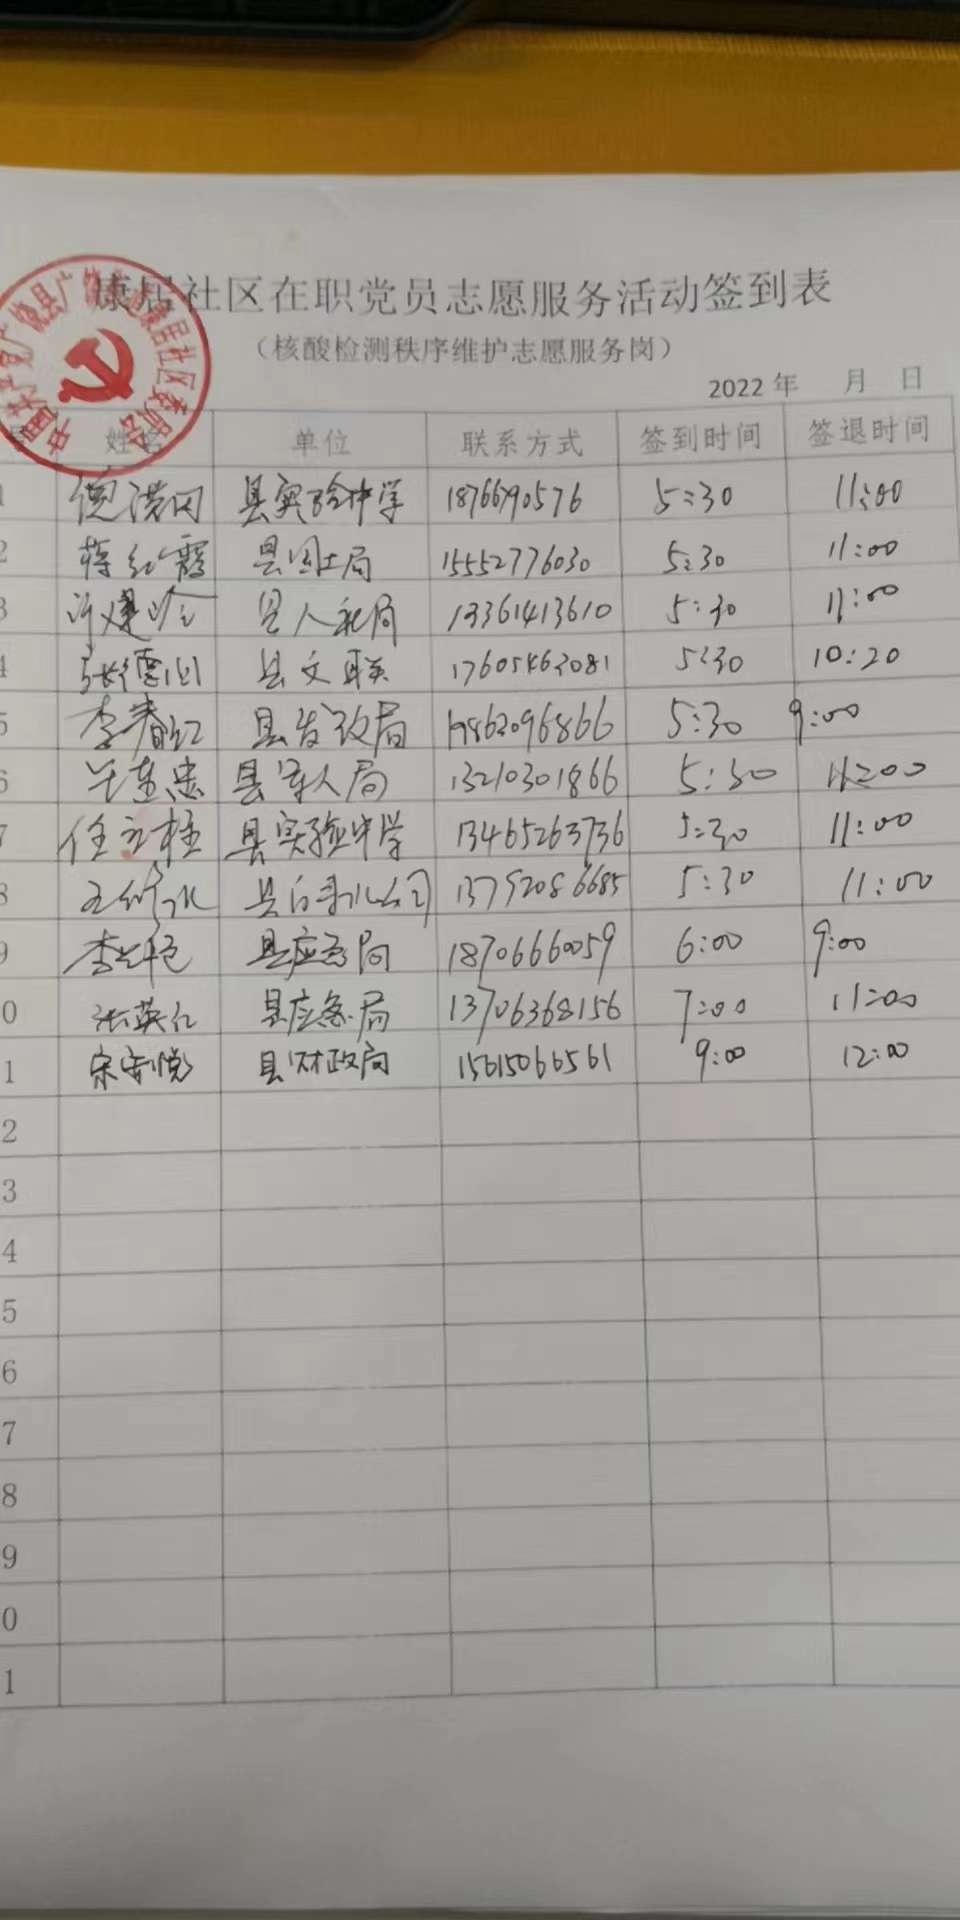 康居社区在职党员志愿服务活动签到表
（核酸检测秩序维护志愿服务岗）
2022年 月 日
号 姓名 单位 联系方式 签到时间 签退时间
1 县实验中学 18766790576 5:30 11:00
2 蒋红霞 县国土局 15552776030 5:30 11:00
3 县人社局 13361413610 5:30 11:00
4 县文联 17605463081 5:30 10:20
5 李春红 县发改局 19862096866 5:30 9:00
6 县军人局 13210301866 5:30 11:00
7 任立柱 县实验中学 13465263736 5:30 11:00
8 13792086685 5:30 11:00
9 县应急局 18706660059 6:00 9:00
0 张英红 县应急局 13706368156 7:00 11:00
1 县财政局 15615066561 9:00 12:00
2
3
4
5
6
7
8
9
0
1